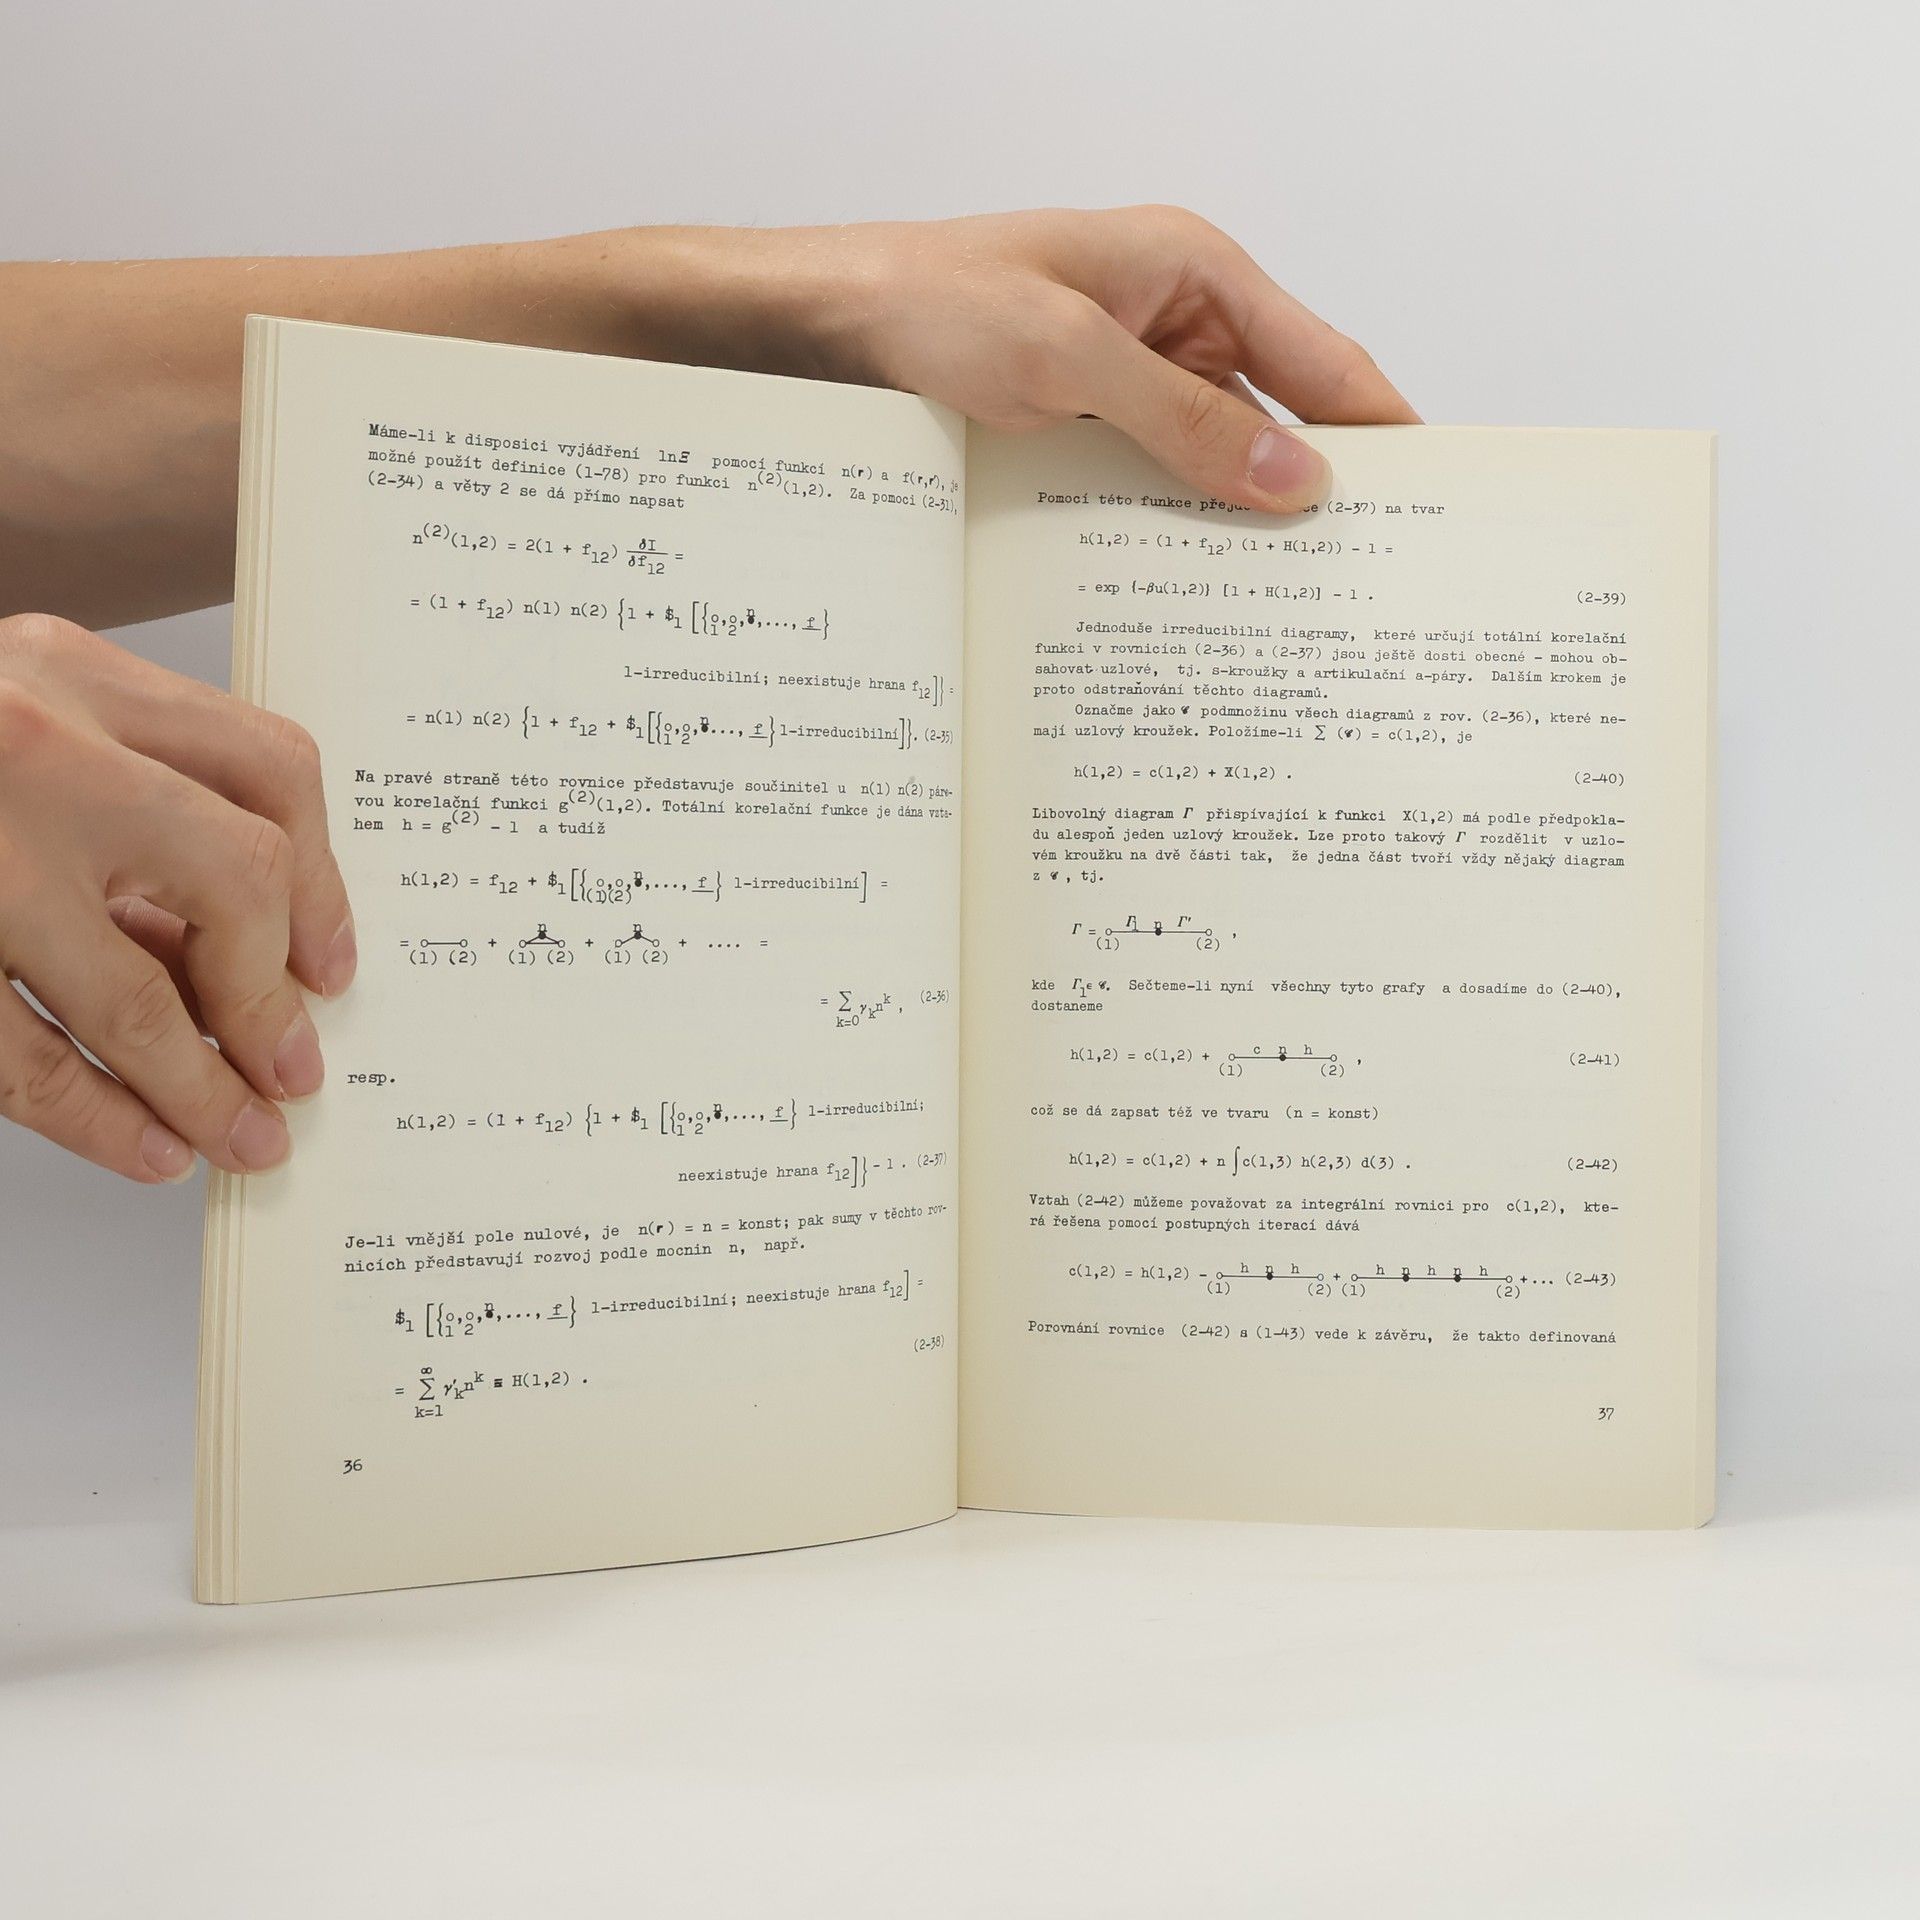 Máme-li k disposici vyjádření lnΞ pomocí funkcí n(r) a f(r,r'), je
možné použít definice (1-78) pro funkci n^(2)(1,2). Za pomoci (2-31),
(2-34) a věty 2 se dá přímo napsat
n^(2)(1,2) = 2(1 + f_12) δI/δf_12 =
= (1 + f_12) n(1) n(2) {1 + $_1 [{o_1,o_2,●^n,..., f}
1-irreducibilní; neexistuje hrana f_12]} =
= n(1) n(2) {1 + f_12 + $_1[{o_1,o_2,●^n..., f} 1-irreducibilní]}. (2-35)
Na pravé straně této rovnice představuje součinitel u n(1) n(2) páro-
vou korelační funkci g^(2)(1,2). Totální korelační funkce je dána vzta-
hem h = g^(2) - 1 a tudíž
h(1,2) = f_12 + $_1[{o_(1),o_(2),●^n,..., f} 1-irreducibilní] =
= o—o + n + n + .... =
(1) (2) (1) (2) (1) (2)
= ∑_{k=0} γ_k n^k , (2-36)
resp.
h(1,2) = (1 + f_12) {1 + $_1 [{o_1,o_2,●^n,..., f} 1-irreducibilní;
neexistuje hrana f_12]} - 1 . (2-37)
Je-li vnější pole nulové, je n(r) = n = konst; pak sumy v těchto rov-
nicích představují rozvoj podle mocnin n, např.
$_1 [{o_1,o_2,●^n,..., f} 1-irreducibilní; neexistuje hrana f_12] =
(2-38)
= ∑_{k=1}^∞ γ'_k n^k ≡ H(1,2) .
36
Pomocí této funkce (2-37) na tvar
h(1,2) = (1 + f_12) (1 + H(1,2)) - 1 =
= exp {-βu(1,2)} [1 + H(1,2)] - 1 . (2-39)
Jednoduše irreducibilní diagramy, které určují totální korelační
funkci v rovnicích (2-36) a (2-37) jsou ještě dosti obecné - mohou ob-
sahovat uzlové, tj. s-kroužky a artikulační a-páry. Dalším krokem je
proto odstraňování těchto diagramů.
Označme jako 𝒞 podmnožinu všech diagramů z rov. (2-36), které ne-
mají uzlový kroužek. Položíme-li ∑ (𝒞) = c(1,2), je
h(1,2) = c(1,2) + X(1,2) . (2-40)
Libovolný diagram Γ přispívající k funkci X(1,2) má podle předpokla-
du alespoň jeden uzlový kroužek. Lze proto takový Γ rozdělit v uzlo-
vém kroužku na dvě části tak, že jedna část tvoří vždy nějaký diagram
z 𝒞 , tj.
Γ_1 n Γ'
Γ = o—●—o ,
(1) (2)
kde Γ_1ϵ 𝒞. Sečteme-li nyní všechny tyto grafy a dosadíme do (2-40),
dostaneme
c n h
h(1,2) = c(1,2) + o—●—o , (2-41)
(1) (2)
což se dá zapsat též ve tvaru (n = konst)
h(1,2) = c(1,2) + n ∫c(1,3) h(2,3) d(3) . (2-42)
Vztah (2-42) můžeme považovat za integrální rovnici pro c(1,2), kte-
rá řešena pomocí postupných iterací dává
h n h h n h n h
c(1,2) = h(1,2) - o—●—o + o—●—●—o +... (2-43)
(1) (2) (1) (2)
Porovnání rovnice (2-42) s (1-43) vede k závěru, že takto definovaná
37